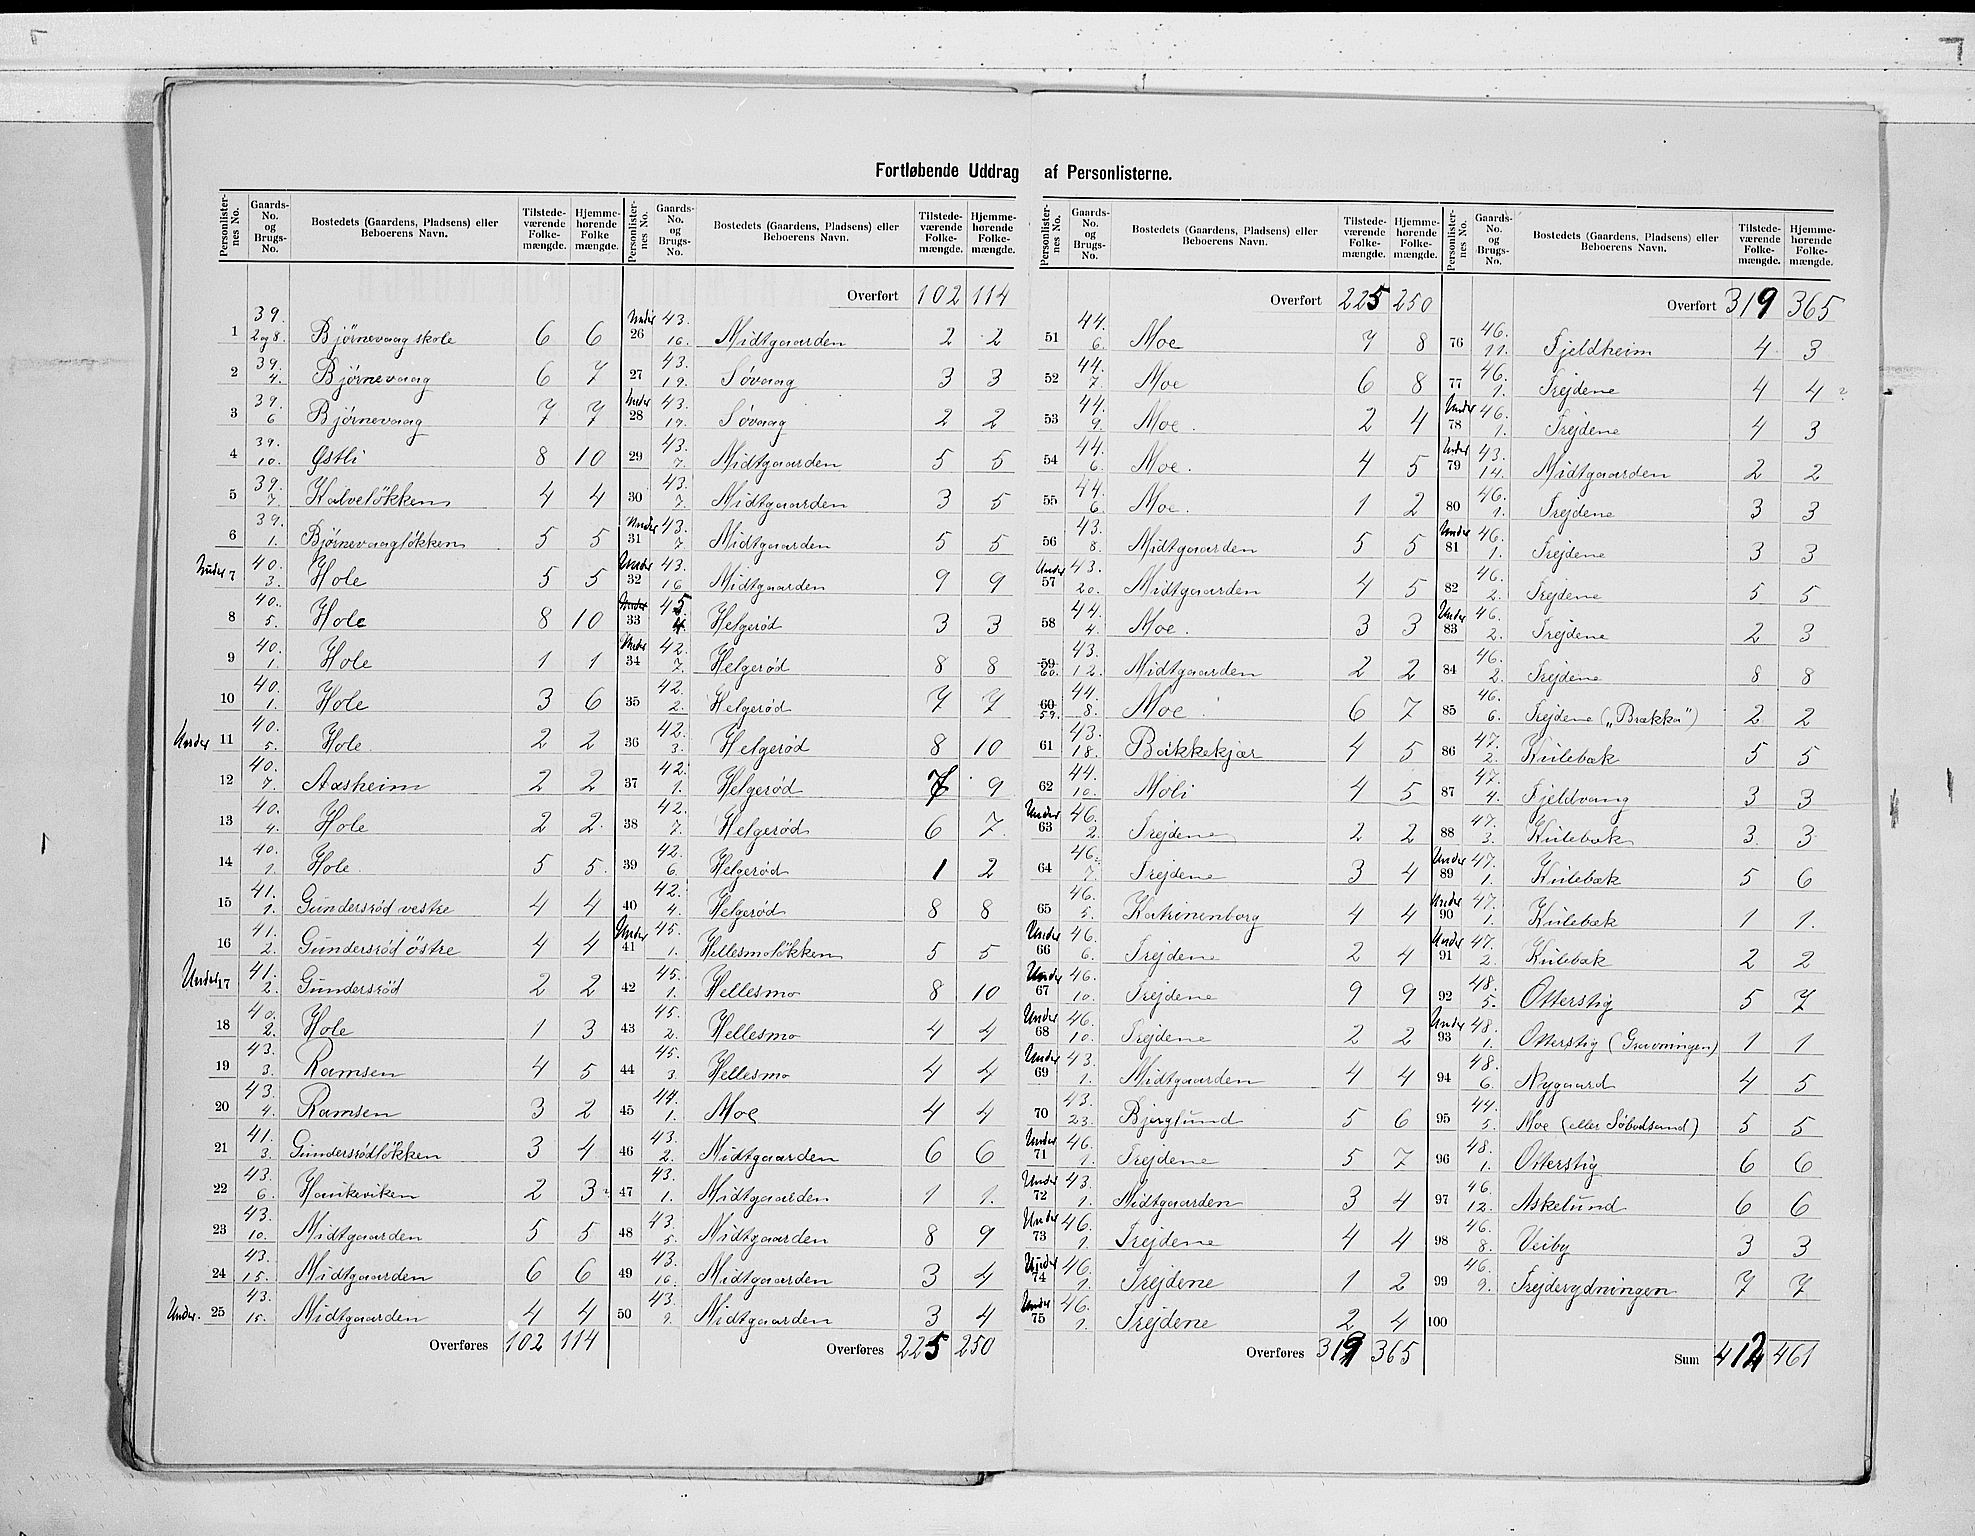 Fortløbende Uddrag af Personlisterne.
Personlister-nes No. | Gaards-No. og Brugs-No. | Bostedets (Gaardens, Pladsens) eller Beboerens Navn. | Tilstede-værende Folke-mængde. | Hjemme-hørende Folke mængde.
1 | 39. 2 og 8. | Bjørnevaag skole | 6 | 6
2 | 39. 4. | Bjørnevaag | 6 | 7
3 | 39. 6 | Bjørnevaag | 7 | 7
4 | 39. 10. | Østli | 8 | 10
5 | 39. 7. | Kalveløkken | 4 | 4
6 | 39. 1. | Bjørnevaagløkken | 5 | 5
Under 7 | 40. 3. | Hole | 5 | 5
8 | 40. 5. | Hole | 8 | 10
9 | 40. 1. | Hole | 1 | 1
10 | 40. 1. | Hole | 3 | 6
Under 11 | 40. 5. | Hole | 2 | 2
12 | 40. 7. | Aasheim | 2 | 2
13 | 40. 4. | Hole | 2 | 2
14 | 40. 1. | Hole | 5 | 5.
15 | 41. 1. | Gundersrød vestre | 4 | 4
16 | 41. 2. | Gundersrød østre | 4 | 4
Under 17 | 41. 2. | Gundersrød | 2 | 2
18 | 40. 2. | Hole | 1 | 3
19 | 43. 3. | Ramsen | 4 | 5
20 | 43. 4. | Ramsen | 3 | 2
21 | 41. 3. | Gundersrødløkken | 3 | 4
22 | 43. 6. | Haukeviken | 2 | 3
23 | 43. 10. | Midtgaarden | 5 | 5
24 | 43. 15. | Midtgaarden | 6 | 6
Under. 25 | 43. 15. | Midtgaarden | 4 | 4
Overføres 102 | 114
Personlister-nes No. | Gaards-No. og Brugs-No. | Bostedets (Gaardens, Pladsens) eller Beboerens Navn. | Tilstede-værende Folke-mængde. | Hjemme-hørende Folke-mængde.
Overført 102 | 114
Under 26 | 43. 16. | Midtgaarden | 2 | 2
27 | 43. 19. | Søvaag | 3 | 3
Under 28 | 43. 19. | Søvaag | 2 | 2
29 | 43. 7. | Midtgaarden | 5 | 5
30 | 43. 7. | Midtgaarden | 3 | 5
Under 31 | 43. 7. | Midtgaarden | 5 | 5
Under 32 | 43. 16 | Midtgaarden | 9 | 9
Under 33 | 45. 4. | Helgerød | 3 | 3
Under 34 | 42. 7. | Helgerød | 8 | 8
35 | 42. 2. | Helgerød | 7 | 7
36 | 42. 3. | Helgerød | 8 | 10
37 | 42. 1. | Helgerød | 7 | 9
38 | 42. 7. | Helgerød | 6 | 7
39 | 42. 6. | Helgerød | 1 | 2
40 | 42. 4. | Helgerød | 8 | 8
Under 41 | 45. 1. | Hellesmoløkken | 5 | 5
42 | 45. 1. | Hellesmo | 8 | 10
43 | 45. 2. | Hellesmo | 4 | 4
44 | 45. 3. | Hellesmo | 4 | 4
45 | 44. 1. | Moe | 4 | 4
46 | 43. 2. | Midtgaarden | 6 | 6
47 | 43. 1. | Midtgaarden | 1 | 1.
48 | 43. 5. | Midtgaarden | 8 | 9
49 | 43. 16. | Midtgaarden | 3 | 4
50 | 43. 9. | Midtgaarden | 3 | 4
Overføres 225 | 250
Personlister-nes No. | Gaards-No. og Brugs-No. | Bostedets (Gaardens, Pladsens) eller Beboerens Navn. | Tilstede-værende Folke-mængde. | Hjemme-hørende Folke-mængde.
Overført 225 | 250
51 | 44. 6. | Moe | 7 | 8
52 | 44. 7. | Moe | 6 | 8
53 | 44. 9. | Moe. | 2 | 4
54 | 44. 6. | Moe. | 4 | 5
55 | 44. 6 | Moe. | 1 | 2
56 | 43. 8. | Midtgaarden | 5 | 5
Under 57 | 43. 20. | Midtgaarden | 4 | 5
58 | 44. 4. | Moe. | 3 | 3
59 60. | 43. 12. | Midtgaarden | 2 | 2
60 59. | 44. 8. | Moe. | 6 | 7
61 | 43. 18. | Bakkekjær | 4 | 5
62 | 44. 10. | Moli | 4 | 5
Under 63 | 46. 2. | Trejdene | 2 | 2
64 | 46. 7. | Trejdene | 3 | 4
65 | 46. 5. | Katrinenborg | 4 | 4
Under 66 | 46. 6. | Trejdene | 2 | 4
Under 67 | 46. 10. | Trejdene | 9 | 9
Under 68 | 46. 10. | Trejdene | 2 | 2
Under 69 | 43. 1. | Midtgaarden | 4 | 4
70 | 43. 23. | Bjerglund | 5 | 6
Under 71 | 46. 1. | Trejdene | 5 | 7
Under 72 | 43. 1. | Midtgaarden | 3 | 4
Under 73 | 46. 1. | Trejdene | 4 | 4
Under 74 | 46. 1. | Trejdene | 1 | 2
Under 75 | 46. 1. | Trejdene | 2 | 4
Overføres 319 | 365
Personlister-nes No. | Gaards-No. og Brugs-No. | Bostedets (Gaardens, Pladsens) eller Beboerens Navn. | Tilstede-værende Folke-mængde. | Hjemme-hørende Folke-mængde.
Overført 319 | 365
76 | 46. 11. | Fjeldheim | 4 | 3
77 | 46. 1. | Trejdene | 4 | 4
Under 78 | 46. 1. | Trejdene | 4 | 3
Under 79 | 43. 14. | Midtgaarden | 2 | 2
80 | 46. 1. | Trejdene | 3 | 3
Under 81 | 46. 1. | Trejdene | 3 | 3
82 | 46. 2. | Trejdene | 5 | 5
Under 83 | 46. 2. | Trejdene | 2 | 3
84 | 46. 2. | Trejdene | 8 | 8
85 | 46. 6. | Trejdene („Brække") | 2 | 2
86 | 47. 2. | Kulebæk | 5 | 5
87 | 47. 4. | Fjeldvang | 3 | 3
88 | 47. 3. | Kulebæk | 3. | 3
Under 89 | 47. 1. | Kulebæk | 5 | 6
Under 90 | 47. 1. | Kulebæk | 1 | 1.
Under 91 | 47. 2. | Kulebæk | 2 | 2
92 | 48. 5. | Otterstig | 5 | 7
Under 93 | 48. 1. | Otterstig (Gravningen) | 1 | 1
94 | 48. 6. | Nygaard | 4 | 5
95 | 44. 5. | Moe (eller Søbodsand) | 5 | 5
96 | 48. 1. | Otterstig | 6 | 6
97 | 46. 12. | Askelund | 6 | 6
98 | 46. 8. | Veiby | 3 | 3
99 | 46. 9. | Trejderydningen | 7 | 7
100
Sum 412 | 461